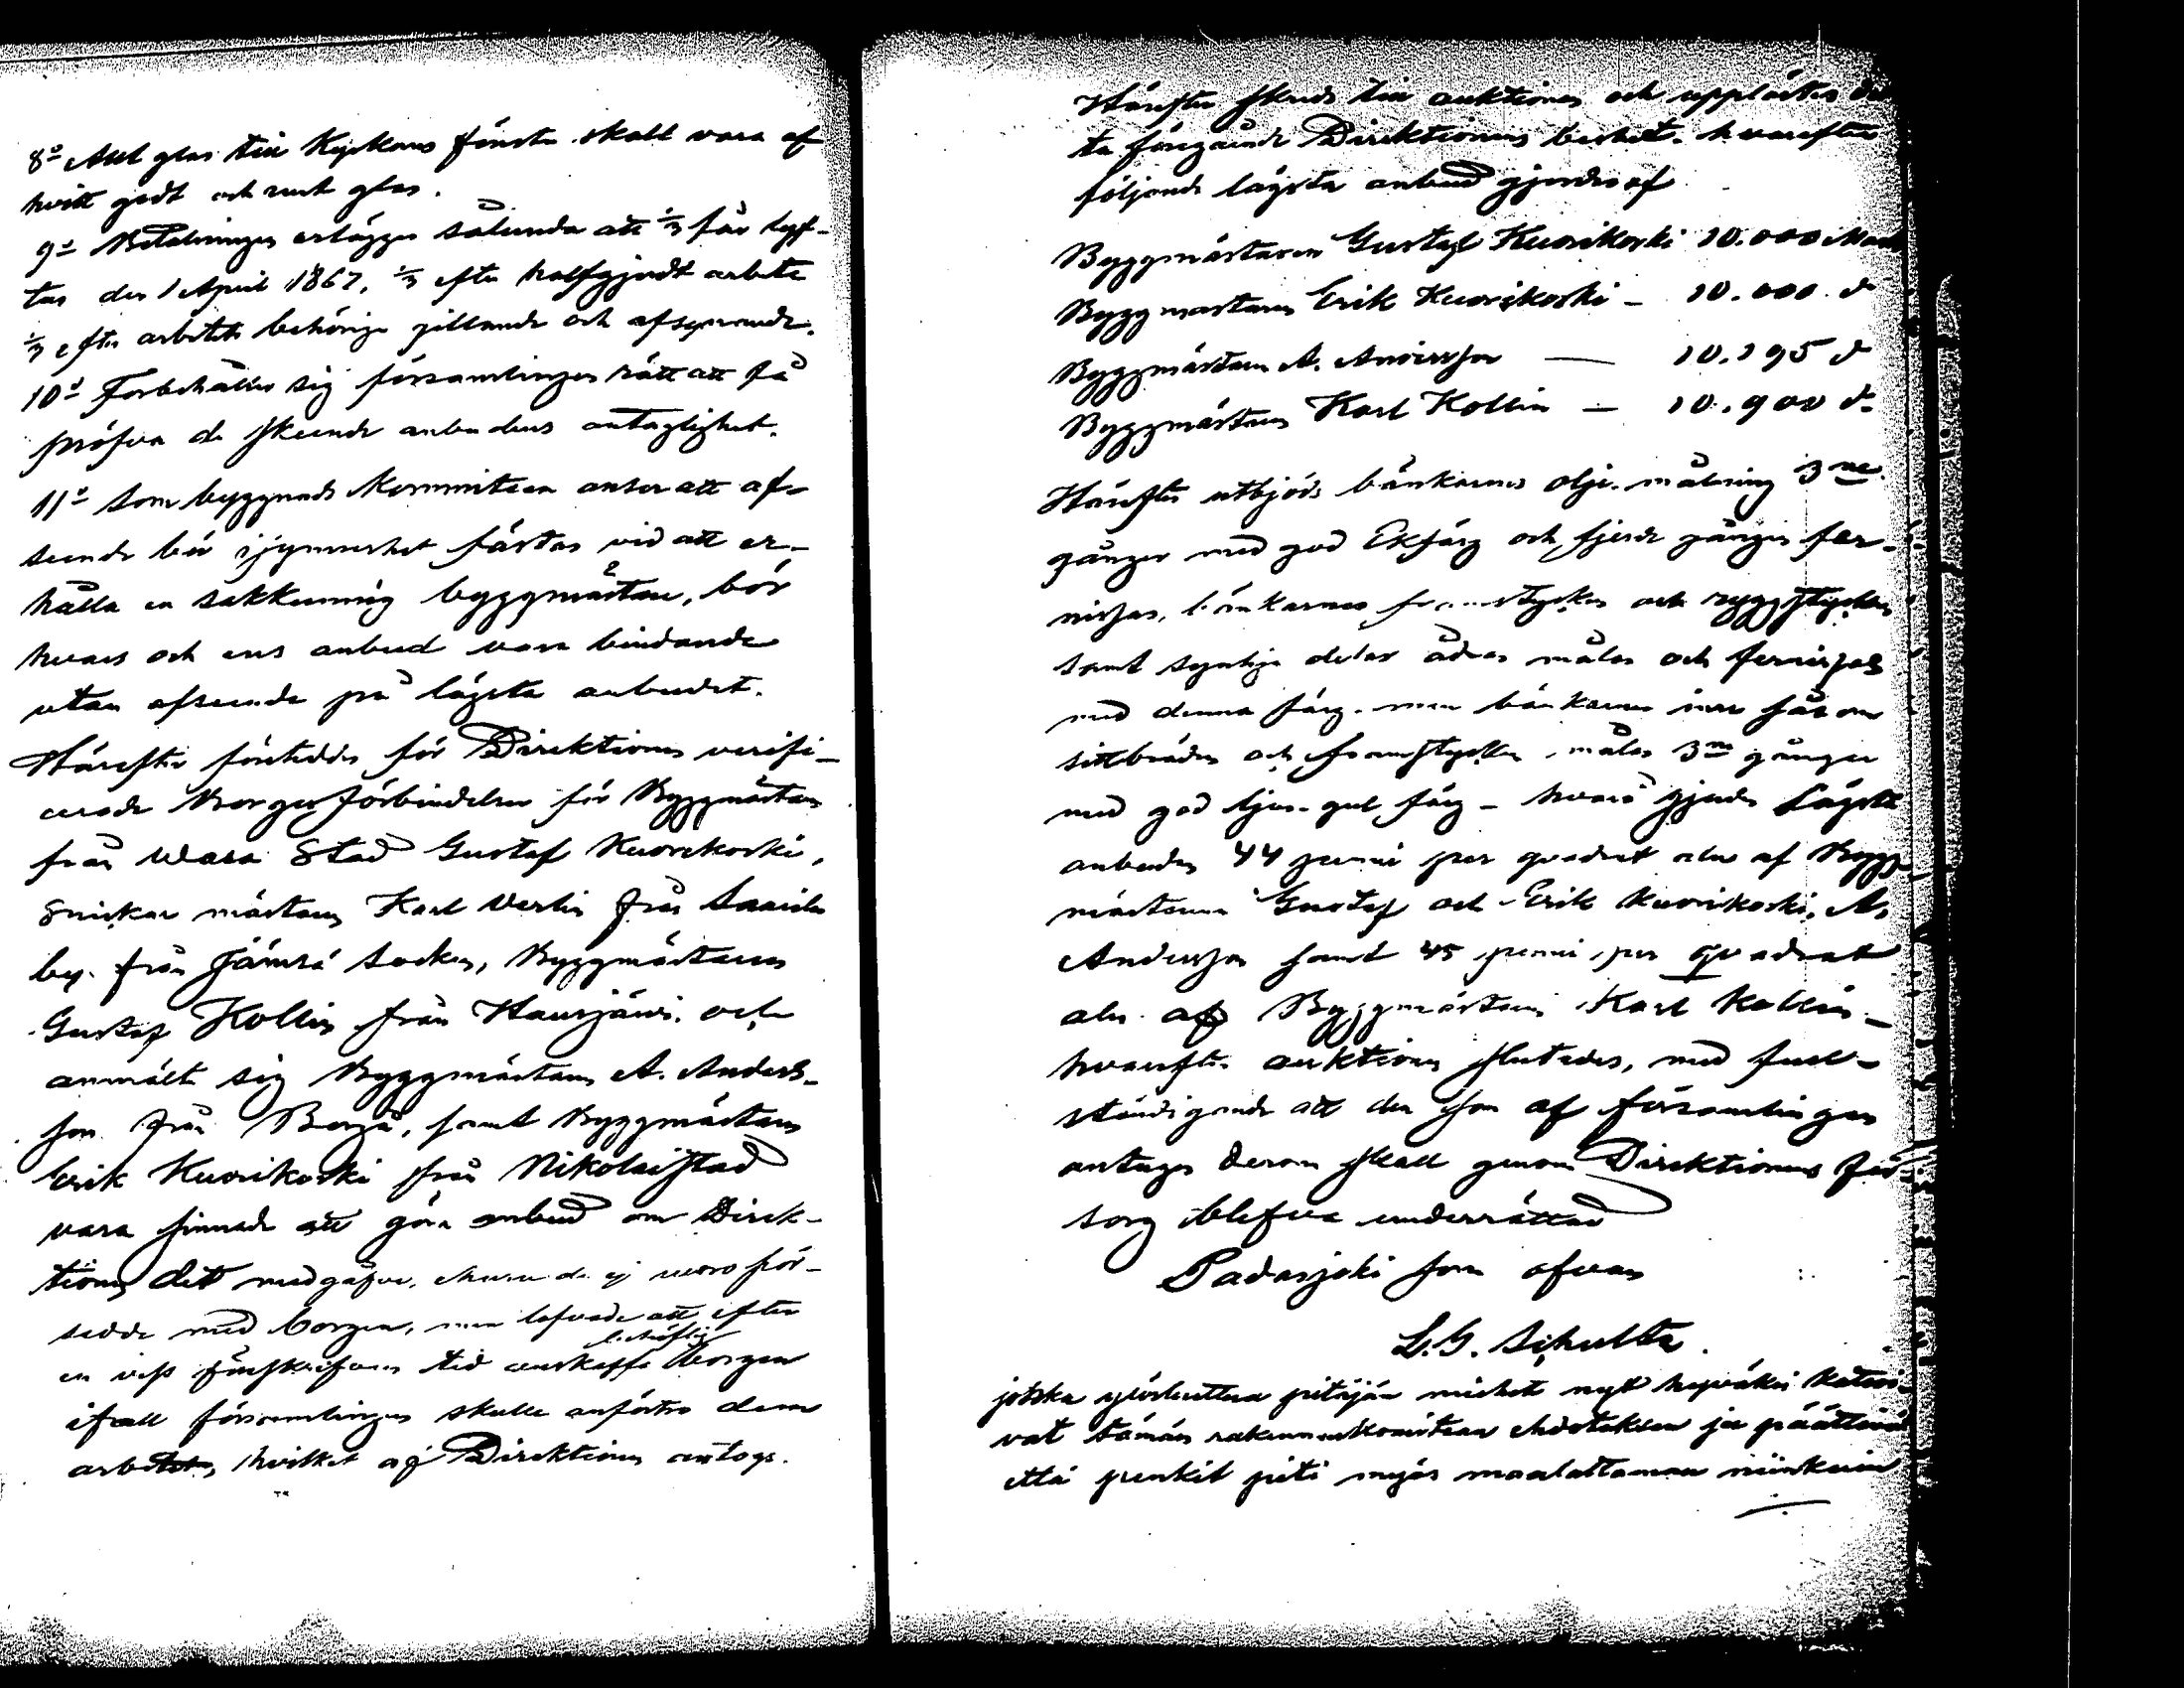 8º Allt glas till Kyrkans fönster skall vara af
hvitt godt och rent glas.
9º Betalningen erlägges sålunda att ⅓ får lyf-
tas den 1 April 1867, ⅓ efter halfgjordt arbete
⅓ efter arbetets behöriga gillande och afsynande.
10º Förbehåller sig församlingen rätt att få
pröfva de skeende anbudens antaglighet.
11º Som byggnads Kommiteen anser att af-
seende bör i synnerhet fästas vid att er-
hålla en sakkunnig byggmästare, bör
hvars och ens anbud vara bindande
utan afseende på lägsta anbudet.
Härefter företeddes för Direktionen verifi-
cerade Borgesförbindelser för Byggmästaren
från Wasa Stad Gustaf Kuorikoski,
Snickar mästaren Karl Verlin från
by från Jämsä Socken, Byggmästaren
Gustaf Kollin från Hausjärvi och
anmälte sig Byggmästaren A. Anders-
son från Borgå, samt Byggmästaren
Erik Kuorikoski från Nikolaistad
vara sinnade att göra anbud om Direk-
tionen dett medgåfve, ehuru de ej voro för-
sedde med borgen, men lofvade att efter
en viss föreskrifven tid anskaffa behöflig borgen
ifall församlingen skulle anförtro dem
arbetet, hvilket af Direktionen antogs.
Härefter skreds till auktionen och upplästes
ta föregående Direktionens beslut. hvarefter
följande lägsta anbud gjordes af
Byggmästaren Gustaf Kuorikoski 10.000 Mark
Byggmästaren Erik Kuorikoski – 10.000 dº
Byggmästaren A. Andersson — 10.195 dº
Byggmästaren Karl Kollin — 10.900 dº
Härefter utbjöds bänkarnes olje-målning 3ne
gånger med god Ekfärg och fjerde gången fer-
nissas, bänkarnes framstycken och ryggstycken
samt synliga delar ådras målas och fernissas
med denna färg. men bänkarnes inre
sittbräden och framstycken, målas 3ne gånger
med god ljus-gul färg – hvarå gjordes Lägsta
anbuden 44 penni per qvadrat aln af Bygg-
mästarene Gustaf och Erik Kuorikoski, A.
Andersson samt 45 penni per qvadrat
aln af Byggmästaren Karl Kollin –
hvarefter auktionen slutades, med
ständigande att den som af församlingen
antages derom skall genom Direktionens för-
sorg blefva underrättad
Padasjoki som ofvan
L. G. Schultz.
jotska ylösluettua pitäjän miehet nyt hyväksi katsoi-
vat tämän rakennuskomitean ehdotuksen ja päättivät
että penkit piti myös maalattaman niinkuin